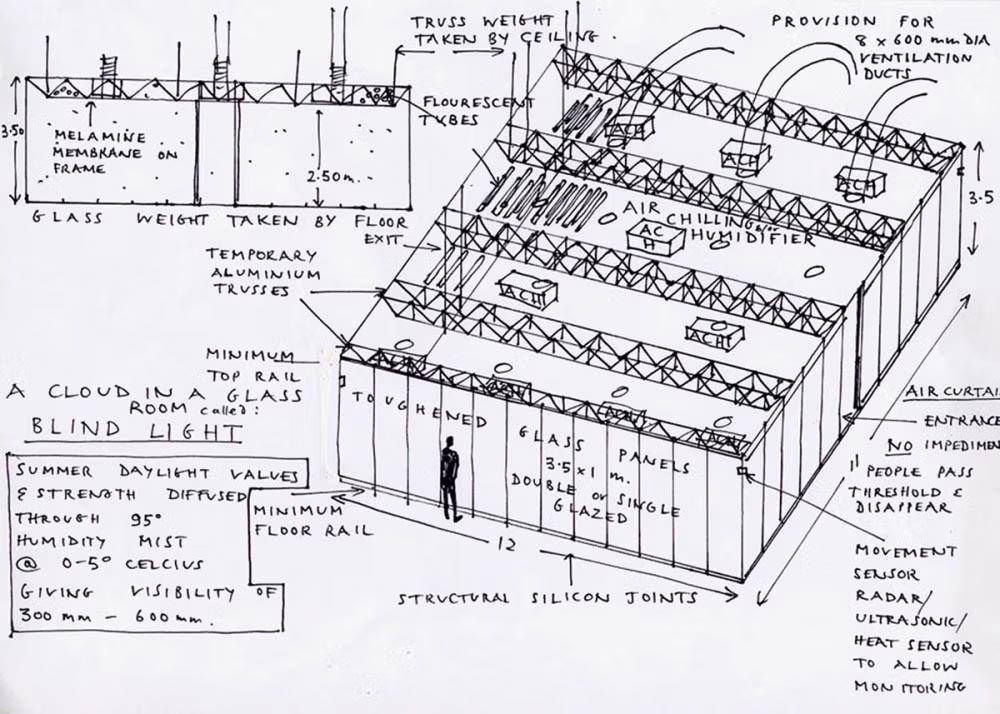 TRUSS WEIGHT
TAKEN BY CEILING.
PROVISION FOR
8 x 600 mm DIA
VENTILATION
DUCTS
FLOURESCENT
TUBES
3.50
MELAMINE
MEMBRANE ON
FRAME
2.50m.
GLASS WEIGHT TAKEN BY FLOOR
EXIT
ACH
ACH
ACH
3.5
AIR
CHILLING
HUMIDIFIER
AC
H
TEMPORARY
ALUMINIUM
TRUSSES
ACH
ACH
MINIMUM
TOP RAIL
A CLOUD IN A GLASS
ROOM called:
BLIND LIGHT
TOUGHENED
GLASS PANELS
3.5 x 1 m.
DOUBLE or SINGLE
GLAZED
ACH
ACH
ACH
AIR CURTAI
ENTRANCE
NO IMPEDIMEN
11
PEOPLE PASS
THRESHOLD &
DISAPPEAR
SUMMER DAYLIGHT VALUES
& STRENGTH DIFFUSED
THROUGH 95°
HUMIDITY MIST
@ 0-5° CELCIUS
GIVING VISIBILITY OF
300 mm - 600 mm.
MINIMUM
FLOOR RAIL
12
STRUCTURAL SILICON JOINTS
MOVEMENT
SENSOR
RADAR/
ULTRASONIC/
HEAT SENSOR
TO ALLOW
MONITORING